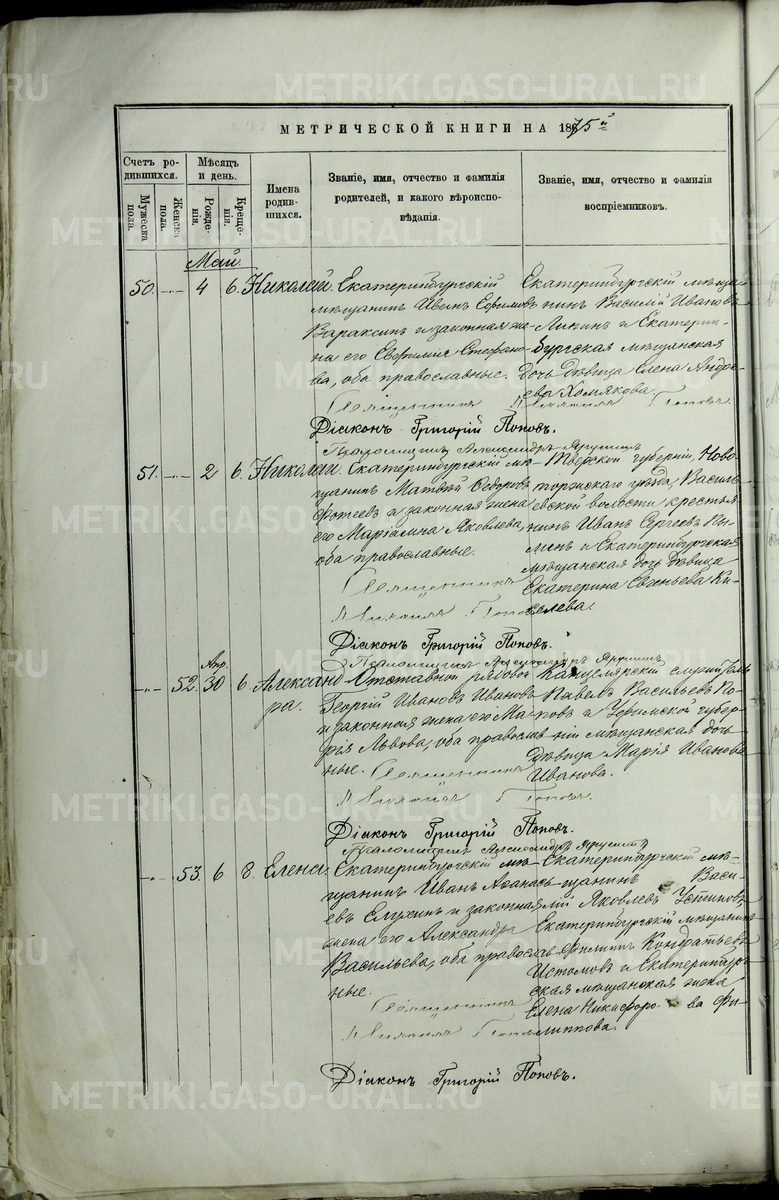 МЕТРИЧЕСКОЙ КНИГИ НА 1875 й
Счетъ ро-
дившихся.
Мѣсяцъ
и день.
Мужеска
пола.
Женска
пола.
Рожде-
нія.
Креще-
нія.
Имена
родив-
шихся.
Званіе, имя, отчество и фамилія
родителей, и какого вѣроиспо-
вѣданія.
Званіе, имя, отчество и фамилія
воспріемниковъ.
Май.
50. 4 6. Николай.
Екатеринбургскій
мѣщанинъ Иванъ Ефимовъ
Вараксинъ и законная же-
на его Евфимия Стефано-
ва, оба православные.
Екатеринбургскій мѣща-
нинъ Василій Ивановъ
и Екатерин-
бургская мѣщанская
дочь дѣвица Елена Андре-
ева Хомякова.
Священникъ Попов.
Діаконъ Григорій Поповъ.
Псаломщикъ Александръ
51. 2 6. Николай.
Екатеринбургскій мѣ-
щанинъ Матвѣй Ѳедоровъ
Фотеевъ и законная жена
его Маріамна Яковлева,
оба православные.
Тверской губерніи, Ново-
торжскаго уѣзда, Василь-
евской волости крестья-
нинъ Иванъ Сергеевъ
и Екатеринбургская
мѣщанская дочь дѣвица
Екатерина Савельева Ки-
селева.
Священникъ
Попов
Діаконъ Григорій Поповъ.
Псаломщикъ Александръ
Апр.
52. 30 6. Александ-
ра.
Отставной рядовой
Георгій Ивановъ Ивановъ
и законная жена его Ма-
рія Львова, оба православ-
ные.
Канцелярскій служитель
Павелъ Васильевъ По-
повъ и Уфимской губер-
ніи мѣщанская дочь
дѣвица Марія Иванова
Иванова.
Священникъ
Поповъ.
Діаконъ Григорій Поповъ.
Псаломщикъ Александръ
53. 6 8. Елена.
Екатеринбургскій мѣ-
щанинъ Иванъ Аѳанась-
евъ Елухинъ и законная
жена его Александра
Васильева, оба православ-
ные.
Екатеринбургскій мѣ-
щанинъ Васи-
лій Яковлевъ Устиновъ
Екатеринбургскій мѣщанинъ
Филиппъ Кондратьевъ
Истомовъ и Екатеринбург-
ская мѣщанская жена
Елена Никифорова Фи-
липпова.
Священникъ
Діаконъ Григорій Поповъ.
METRIKI.GASO-URAL.RU